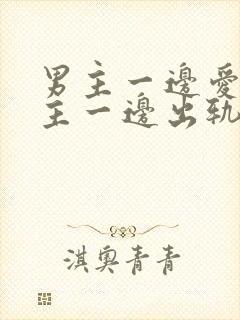 男主一邊愛
主一邊出軌
淇奧青青